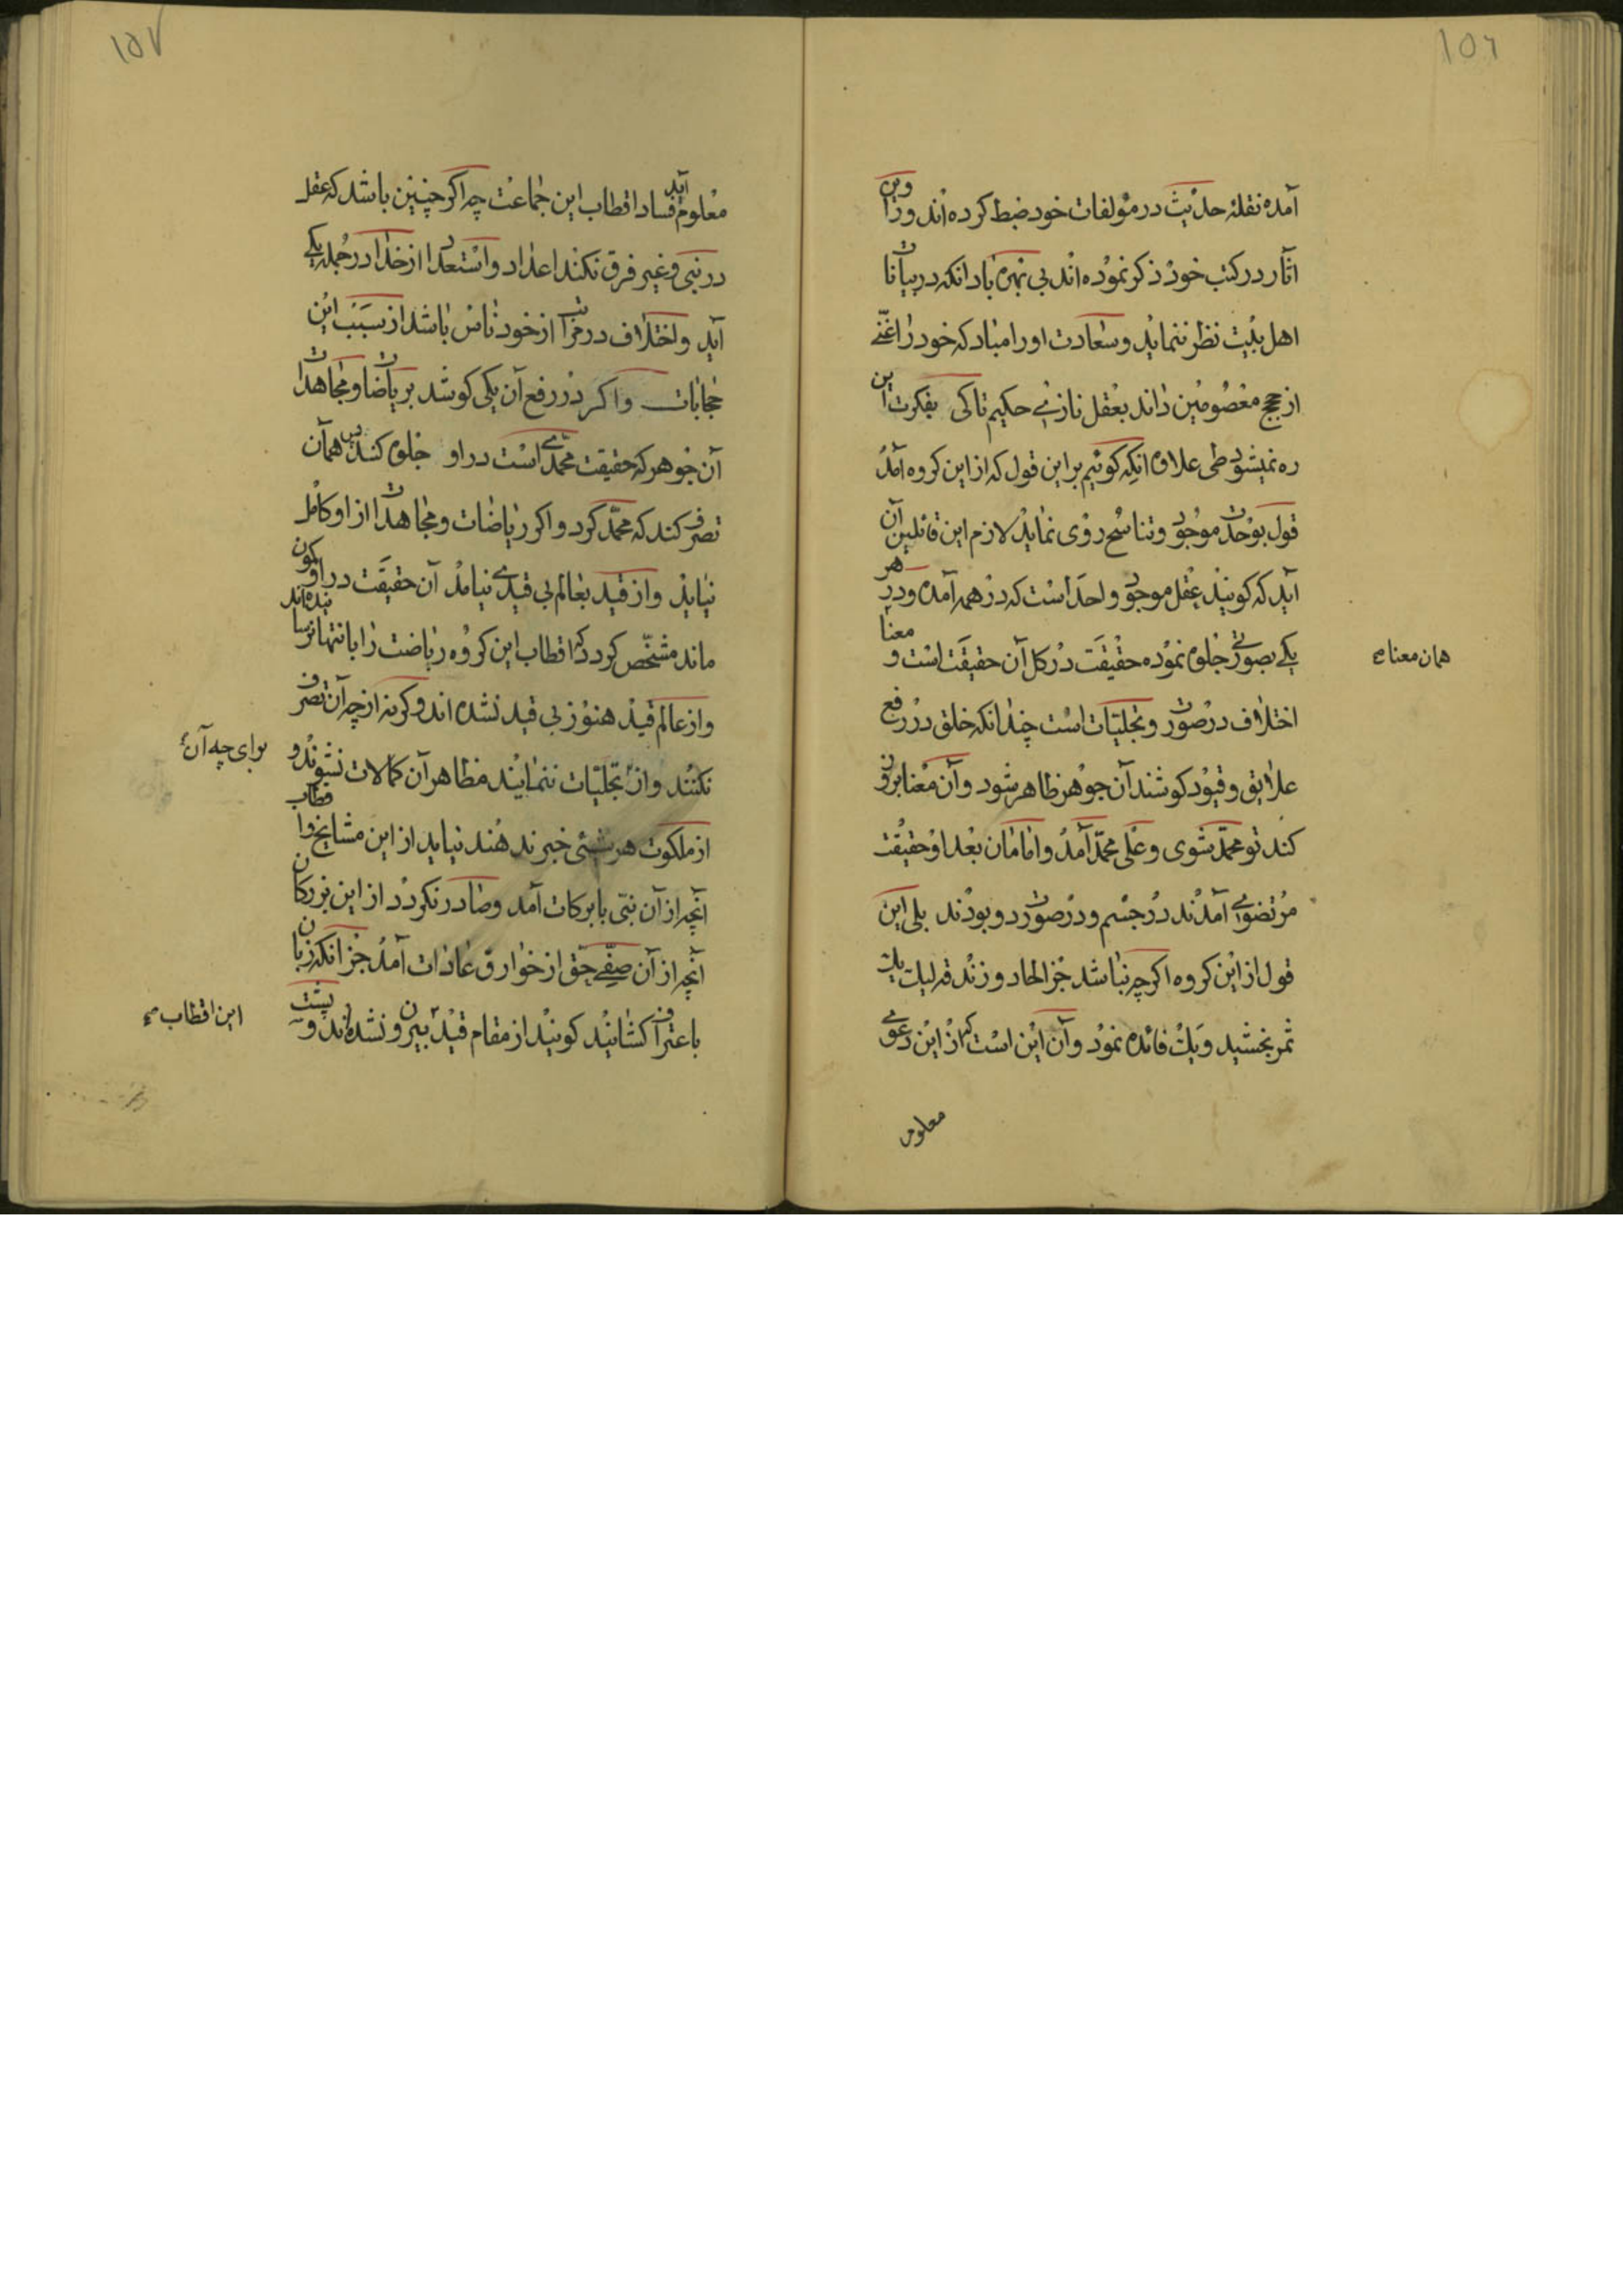 ۱۵۶
آمده نقلۀ حدیث در مؤلفات خود ضبط کرده اند وراوین
اثار در کتب خود ذکر نموده اند بی بهره باد انکه در بیانات
اهل بیت نظر ننماید و سعادت اورا مباد که خود را غنی
از حجج معصومین داند بعقل نازد ای حکیم تا کی بفکرت این
ره نمیشود طی علاوه انکه کوئیم بر این قول که از این کروه آمد
قول بوحدت موجود و تناسخ روی نماید لازم این قائلین آن
آید که کویند عقل موجود واحد است که در همه آمده و در هر
یکی بصورتی جلوه نموده حقیقت در کل آن حقیقت است و معنا
همان معنا
اختلاف در صورت و تجلیات است چندانکه خلق در رفع
علایق و قیود کوشند آن جوهر ظاهر شود و آن معنا بروز
کند تو محمد شوی و علی محمد آمد و امامان بعد او حقیقت
مرتضوی آمدند در جسم و در صورت دو بودند بلی این
قول از این کروه اکرچه نباشد جز الحاد و زندقه لیک یک
ثمر بخشید و یک فائده نمود و آن این است که از این دعوی
معلوم
۱۵۷
معلوم آید فساد اقطاب این جماعت چه اکر چنین باشد که عقل
در نبی و غیر فرق نکند اعداد و استعداد از خدا در جمله یکی
آید و اختلاف در مراتب از خود ناس باشد از سبب این
حجابات و اکر در رفع آن یکی کوشد بریاضات و مجاهدات
آن جوهر که حقیقت محمدی است در او جلوه کند پس همان
تصرف کند که محمد کرد و اکر ریاضات و مجاهدات از او کامل
نیاید و از قید بعالم بی قیدی نیامد آن حقیقت در او کمون
ماند مشخص کردد که اقطاب این کروه ریاضت را بانتها نرسانیده اند
و از عالم قید هنوز بی قید نشده اند و کرنه از چه آن تصرف
برای چه آن
نکنند و از تجلیات ننمایند مظاهر آن کمالات نشوند و
از ملکوت هر شیئی خبر ندهند نیاید از این مشایخ و اقطاب
آنچه از آن نبی با برکات آمد و صادر نکردد از این بزرکان
آنچه از آن صفی حق از خوارق عادات آمد جز انکه زبان
باعتراف کشانید کویند از مقام قید بیرون نشده اند و نیست
این اقطاب